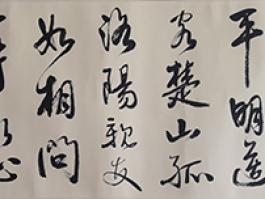 平明送
客楚山孤
洛陽親友
如相問